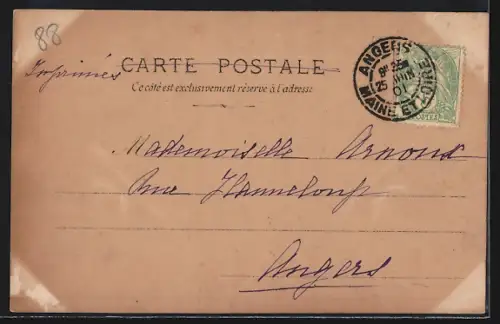 88
Imprimés
CARTE POSTALE
Ce côté est exclusivement réservé à l'adresse
ANGERS
25 JUIN
01
MAINE ET LOIRE
Mademoiselle Arnoux
Rue Hanneloup
Angers